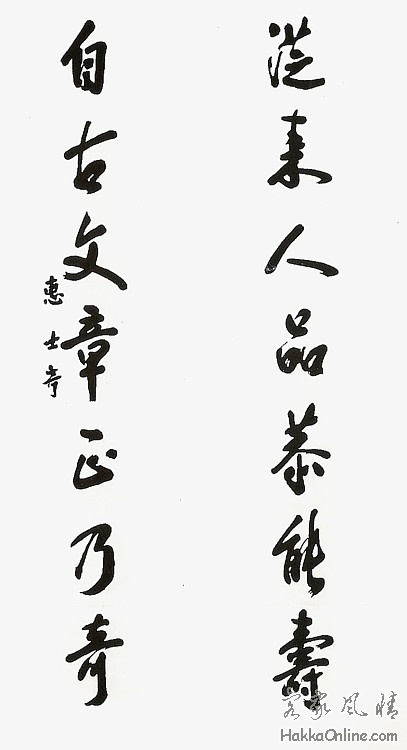 從來人品恭能壽
自古文章正乃奇
惠士奇
客家风情
HakkaOnline.com